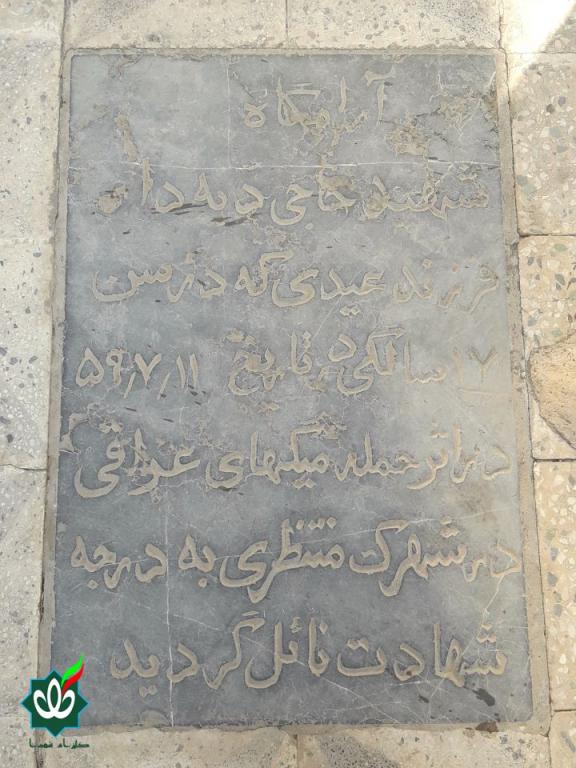 آرامگاه
شهید حاجی دیه دار
فرزند عیدی که در سن
۱۷ سالگی در تاریخ ۵۹٫۷٫۱۱
در اثر حمله میگهای عراقی
در شهرک منتظری به درجه
شهادت نائل گردید